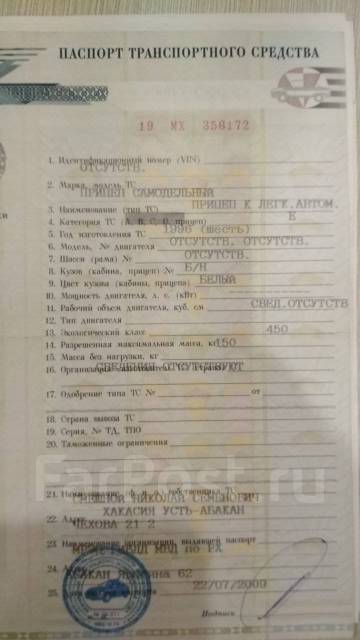 ПАСПОРТ ТРАНСПОРТНОГО СРЕДСТВА
19 МХ 356172
1. Идентификационный номер (VIN)
ОТСУТСТВ.
2. Марка, модель ТС
ПРИЦЕП САМОДЕЛЬНЫЙ
3. Наименование (тип ТС) ПРИЦЕП К ЛЕГК.АВТОМ.
4. Категория ТС (A, B, C, D, прицеп) E
5. Год изготовления ТС 1996 (шесть)
6. Модель, № двигателя ОТСУТСТВ. ОТСУТСТВ.
7. Шасси (рама) № ОТСУТСТВ.
8. Кузов (кабина, прицеп) № Б/Н
9. Цвет кузова (кабины, прицепа) БЕЛЫЙ
10. Мощность двигателя, л. с. (кВт)
11. Рабочий объем двигателя, куб. см СВЕД.ОТСУТСТВ
12. Тип двигателя
13. Экологический класс 450
14. Разрешенная максимальная масса, кг 150
15. Масса без нагрузки, кг
16. Организация (страна)
СВЕДЕНИЯ ОТСУТСТВУЮТ
17. Одобрение типа ТС № от
18. Страна вывоза ТС
19. Серия, № ТД, ТПО
20. Таможенные ограничения
FarPost.ru
21. Наименование собственника ТС
НИКОЛАЙ СЕМЕНОВИЧ
ХАКАСИЯ УСТЬ-АБАКАН
22.
ЧЕХОВА 21 2
23. Наименование организации, выдавшей паспорт
МВД по РХ
24.
АБАКАН 62
25. 22/07/2009
Подпись